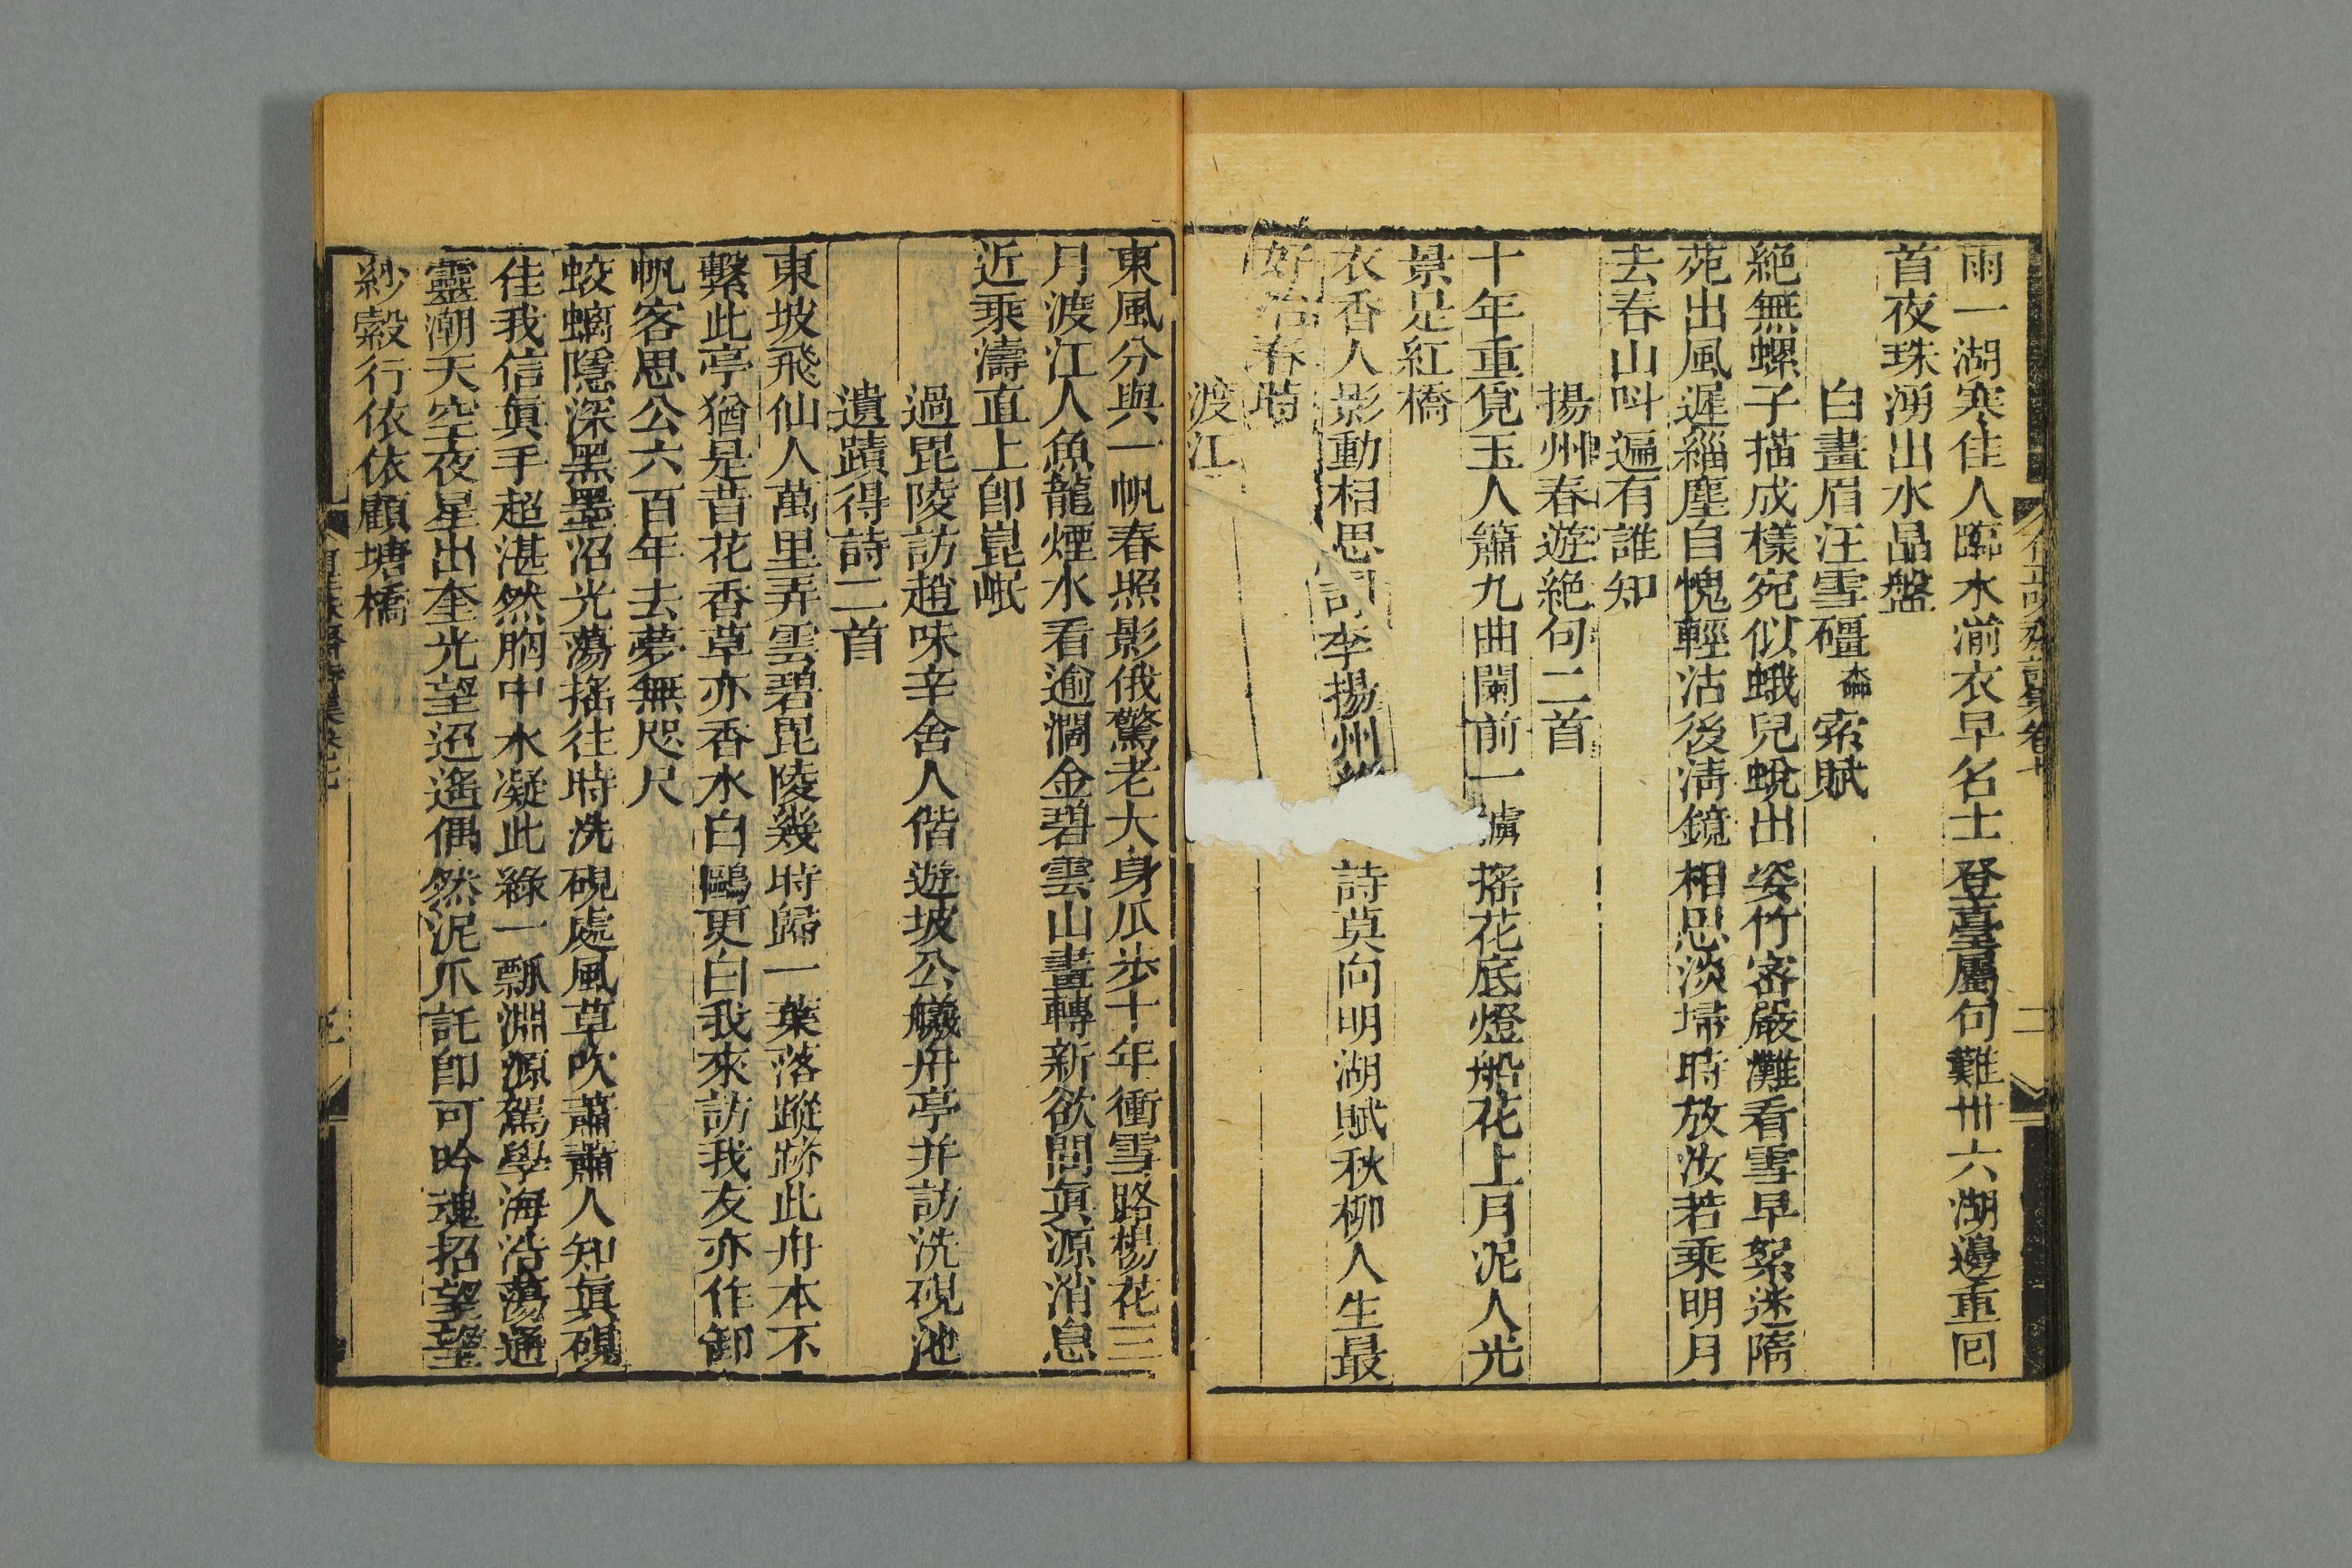 雨一湖寒佳人臨水湔衣早名士登臺屬句難卅六湖邊重回
首夜珠湧出水晶盤
白畫眉汪雪礓索賦
絕無螺子描成樣宛似蛾兒蛻出姿竹密嚴灘看雪早絮迷隋
苑出風遲緇塵自愧輕沾後淸鏡相思淡埽時放汝若乘明月
去春山叫遍有誰知
揚州春遊絕句二首
十年重覓玉人簫九曲闌前一艣搖花底燈船花上月泥人光
景是紅橋
衣香人影動相思詞李揚州詩莫向明湖賦秋柳人生最
好冶春時
渡江
東風分與一帆春照影俄驚老大身瓜步十年衝雪路楊花三
月渡江人魚龍煙水看逾濶金碧雲山畫轉新欲問眞源消息
近乘濤直上卽崑岷
過毘陵訪趙味辛舍人偕遊坡公艤舟亭并訪洗硯池
遺蹟得詩二首
東坡飛仙人萬里弄雲碧毘陵幾時歸一葉落蹤跡此舟本不
繫此亭猶是昔花香草亦香水白鷗更白我來訪我友亦作卸
帆客思公六百年去夢無咫尺
蛟螭隱深黑墨沼光蕩搖往時洗硯處風草吹蕭蕭人知眞硯
佳我信眞手超湛然胸中水凝此綠一瓢淵源駕學海浩蕩通
靈潮天空夜星出奎光望迢遙偶然泥爪託卽可吟魂招望望
紗縠行依依顧塘橋